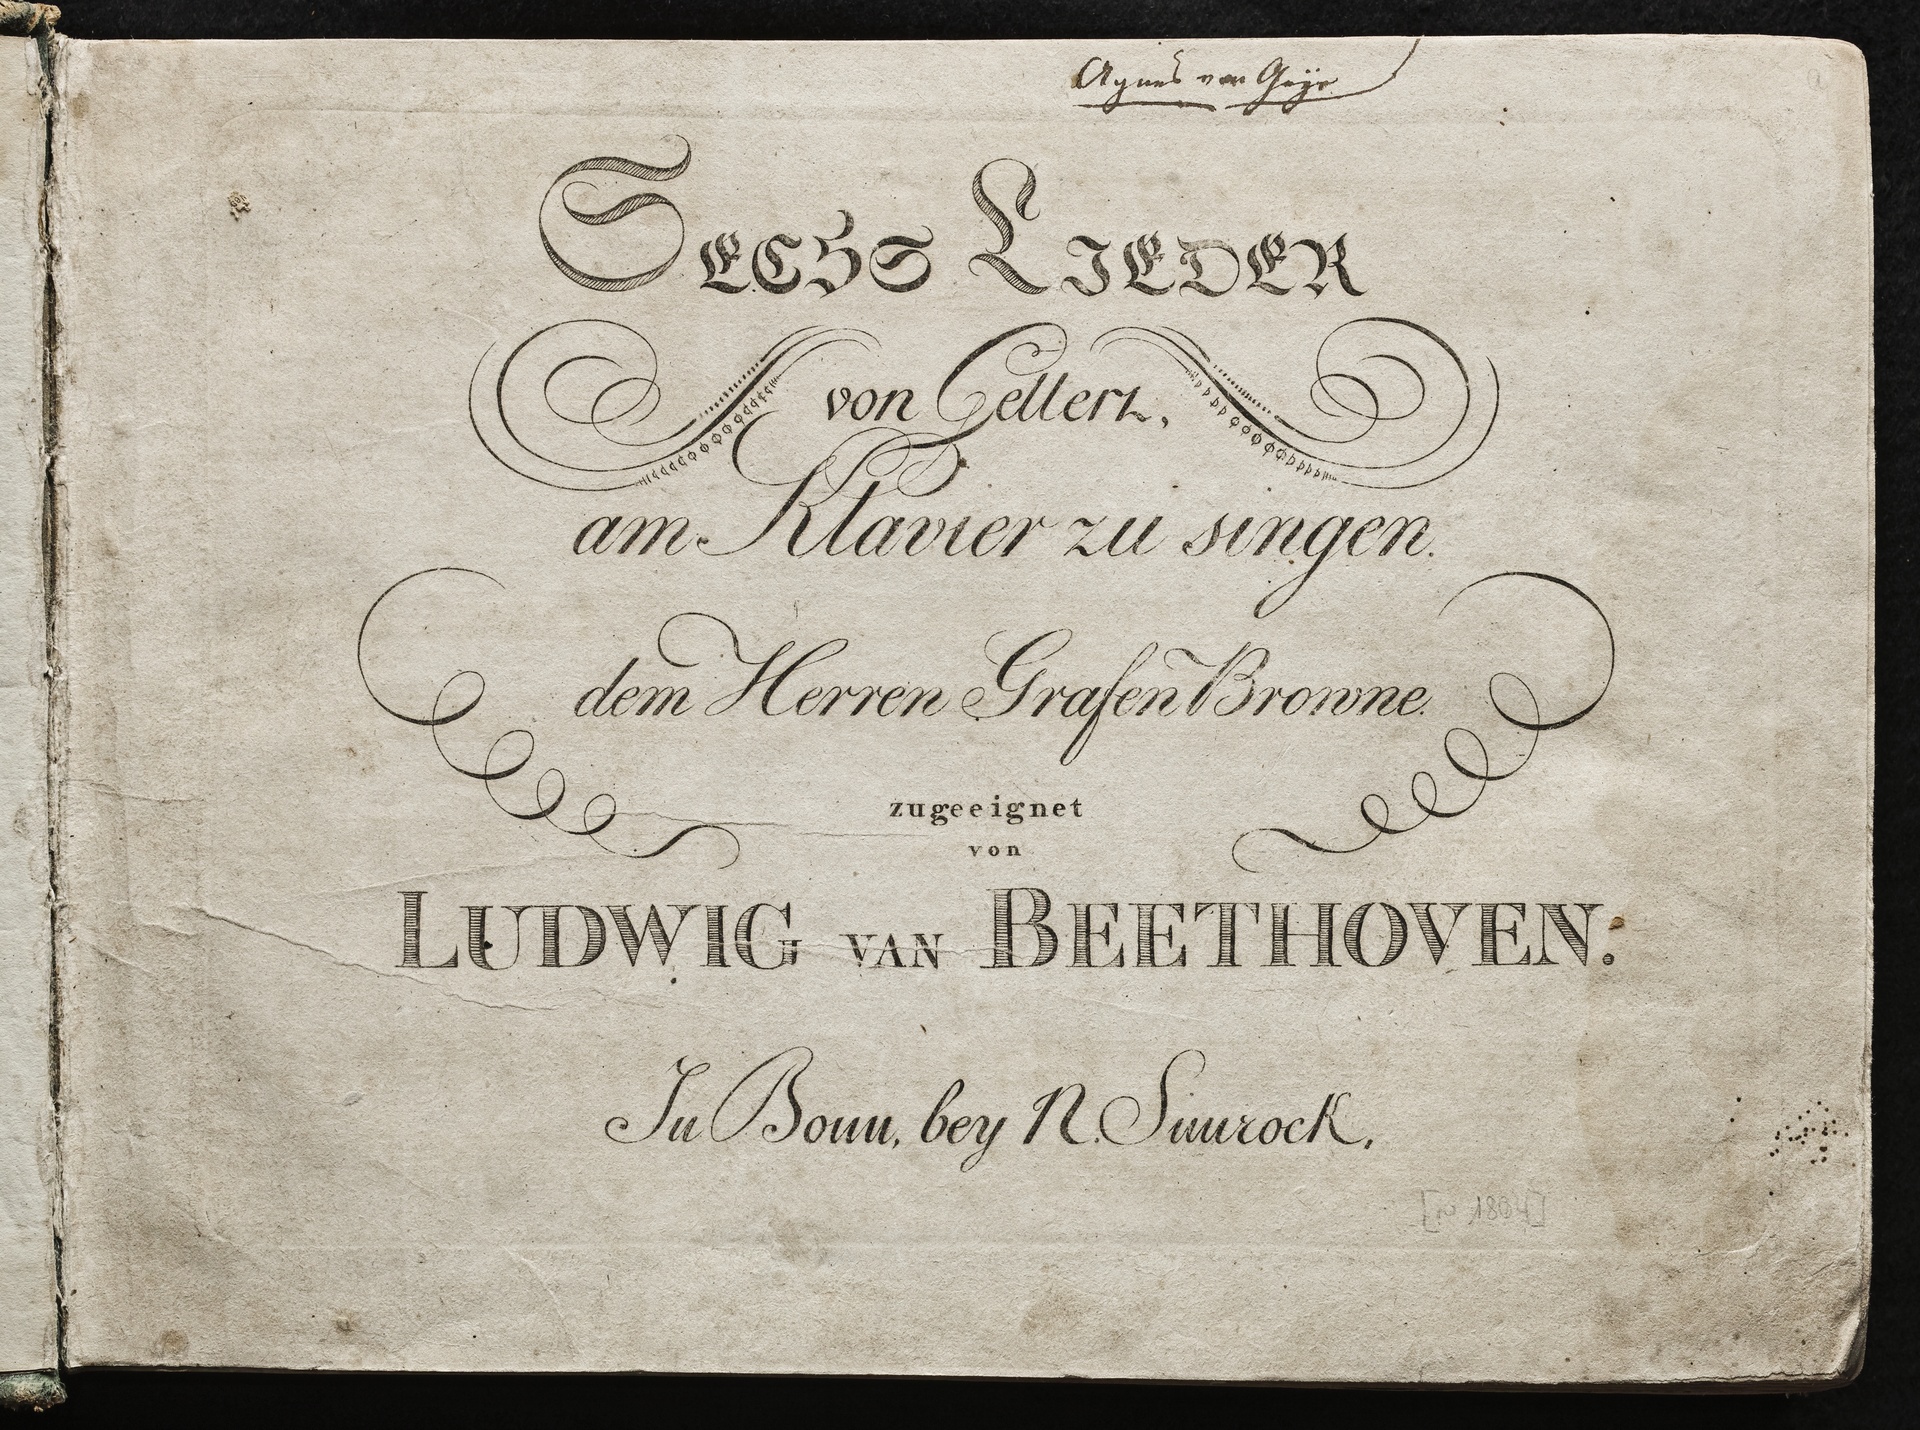 Agnes von
SECHS LIEDER
von Gellert,
am Klavier zu singen.
dem Herren Grafen Browne.
zugeeignet
von
LUDWIG VAN BEETHOVEN.
In Bonn, bey N. Simrock.